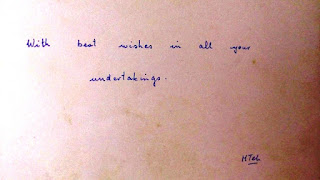 With best wishes in all your
undertakings.